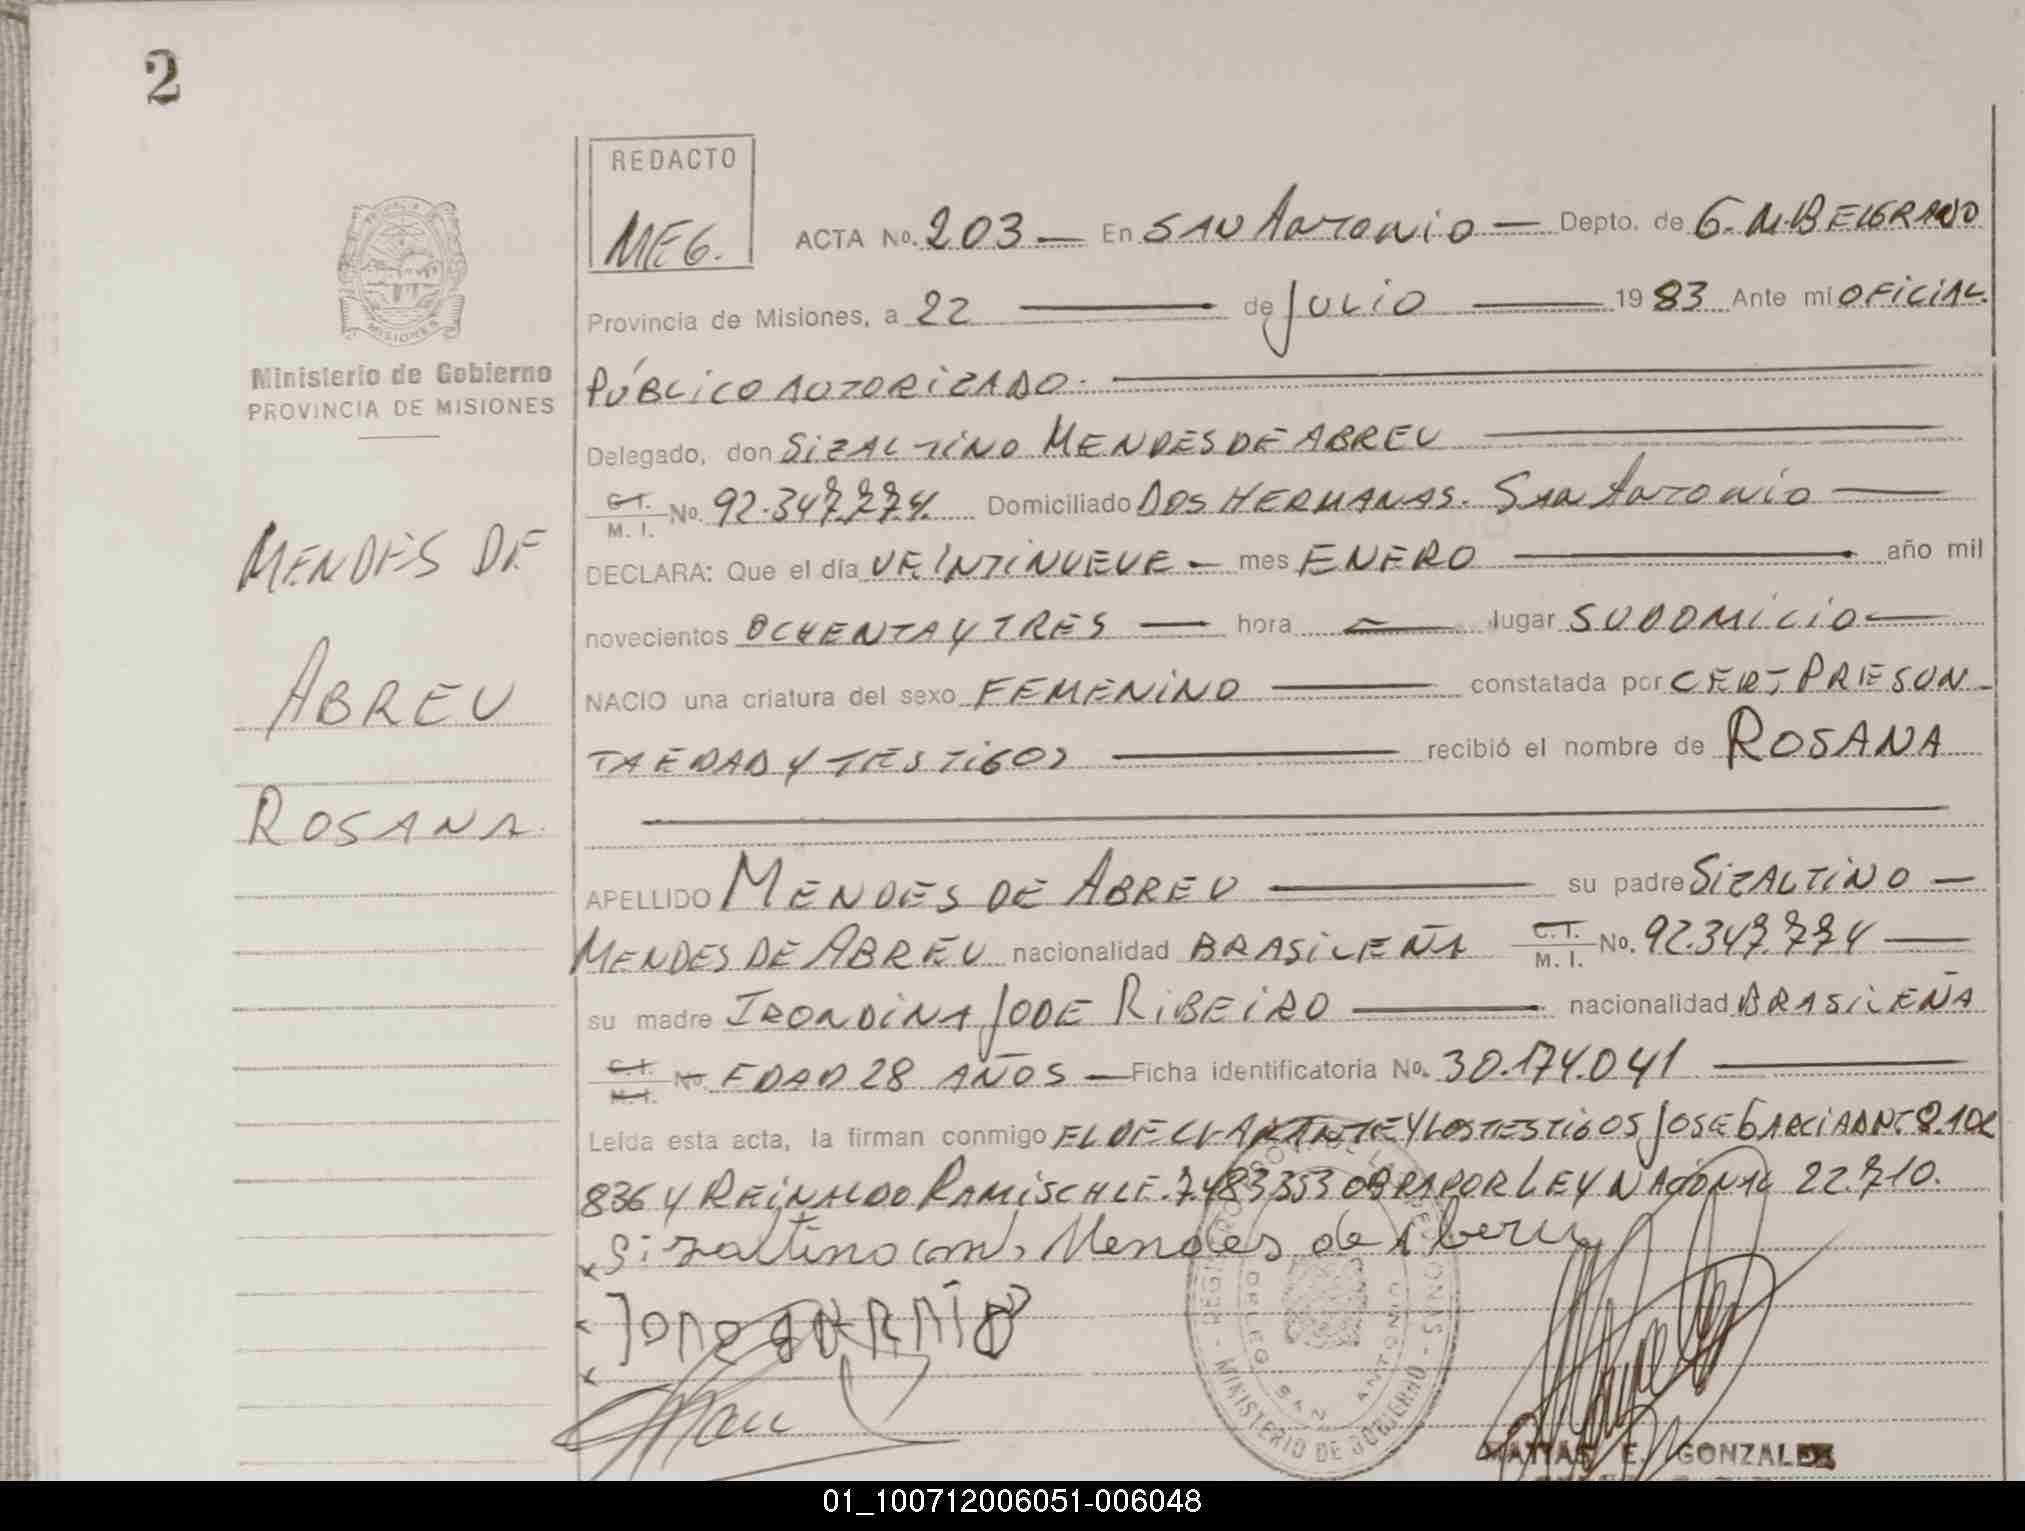 2
REDACTO
MEG.
ACTA No. 203 — En SAN ANTONIO — Depto. de G. M. BELGRANO
PROVINCIA DE MISIONES
Ministerio de Gobierno
PROVINCIA DE MISIONES
Provincia de Misiones, a 22 — de JULIO — 1983 Ante mi OFICIAL
PÚBLICO AUTORIZADO. —
Delegado, don SIZALTINO MENDES DE ABREU —
C. I. M. I. No. 92.347.774. Domiciliado DOS HERMANAS. SAN ANTONIO —
MENDES DE
ABREU
ROSANA.
DECLARA: Que el día VEINTINUEVE — mes ENERO — año mil
novecientos OCHENTA Y TRES — hora — lugar SU DOMICIO —
NACIO una criatura del sexo FEMENINO — constatada por CERT PRESUN-
TA EDAD Y TESTIGOS — recibió el nombre de ROSANA
APELLIDO MENDES DE ABREU — su padre SIZALTINO —
MENDES DE ABREU nacionalidad BRASILEÑA C. I. M. I. No. 92.347.774 —
su madre IRONDINA JODE RIBEIRO — nacionalidad BRASILEÑA
C. I. M. I. No. EDAD 28 AÑOS — Ficha identificatoria No. 30.174.041 —
Leída esta acta, la firman conmigo EL DECLARANTE Y LOS TESTIGOS JOSE GARCIA DNI 8.102
836 Y REINALDO RAMISCH LE. 7.483353 OBRA POR LEY NACIONAL 22.710.
x Sizaltino Mendes de
REGISTRO DE LAS PERSONAS - MINISTERIO DE GOBIERNO -
DELEG. SAN ANTONIO
MATIAS E. GONZALEZ
01_100712006051-006048